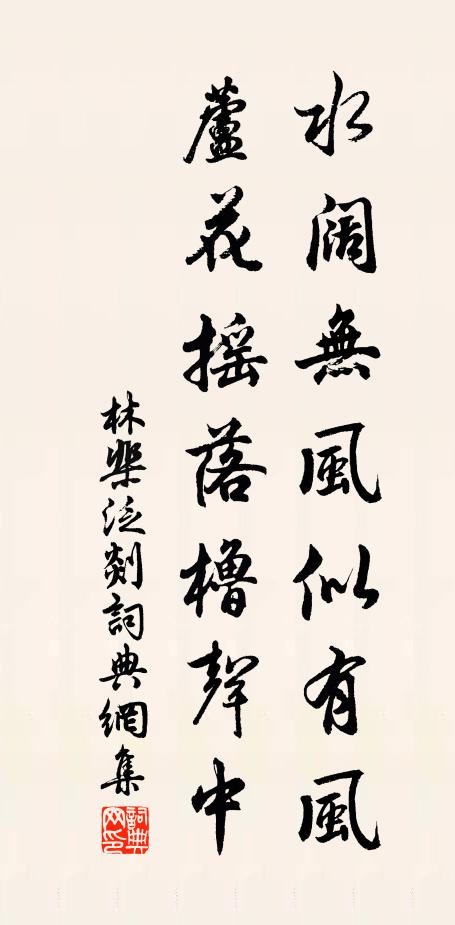 水闊無風似有風
蘆花摇落櫓聲中
林槩泛剡詞典網集
詞典网印